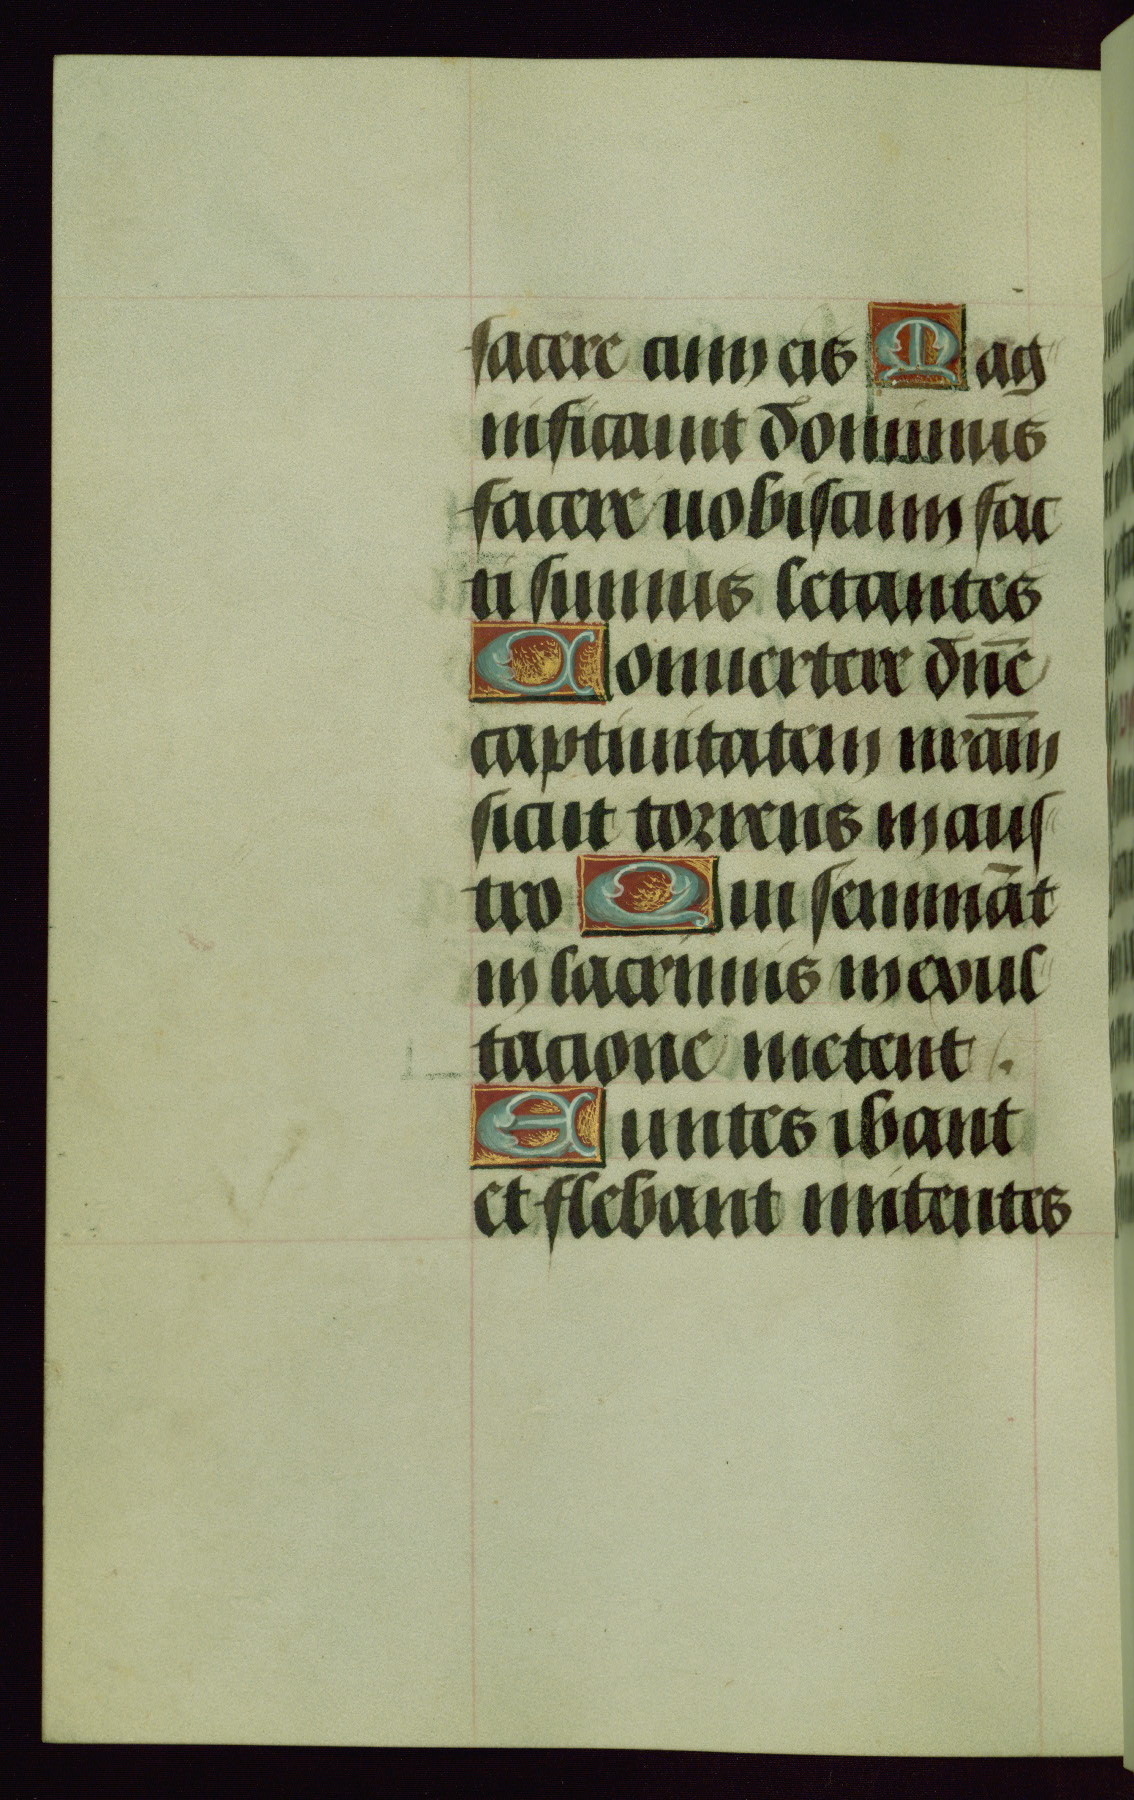 facere cum eis Mag
nificauit dominus
facere uobiscum fac
ti sumus letantes
Conuertere dn̄e
captiuitatem nr̄am
sicut torrens in aus
tro Qui semināt
in lacrimis in exul
tacione metent.
Euntes ibant
et flebant mitentes